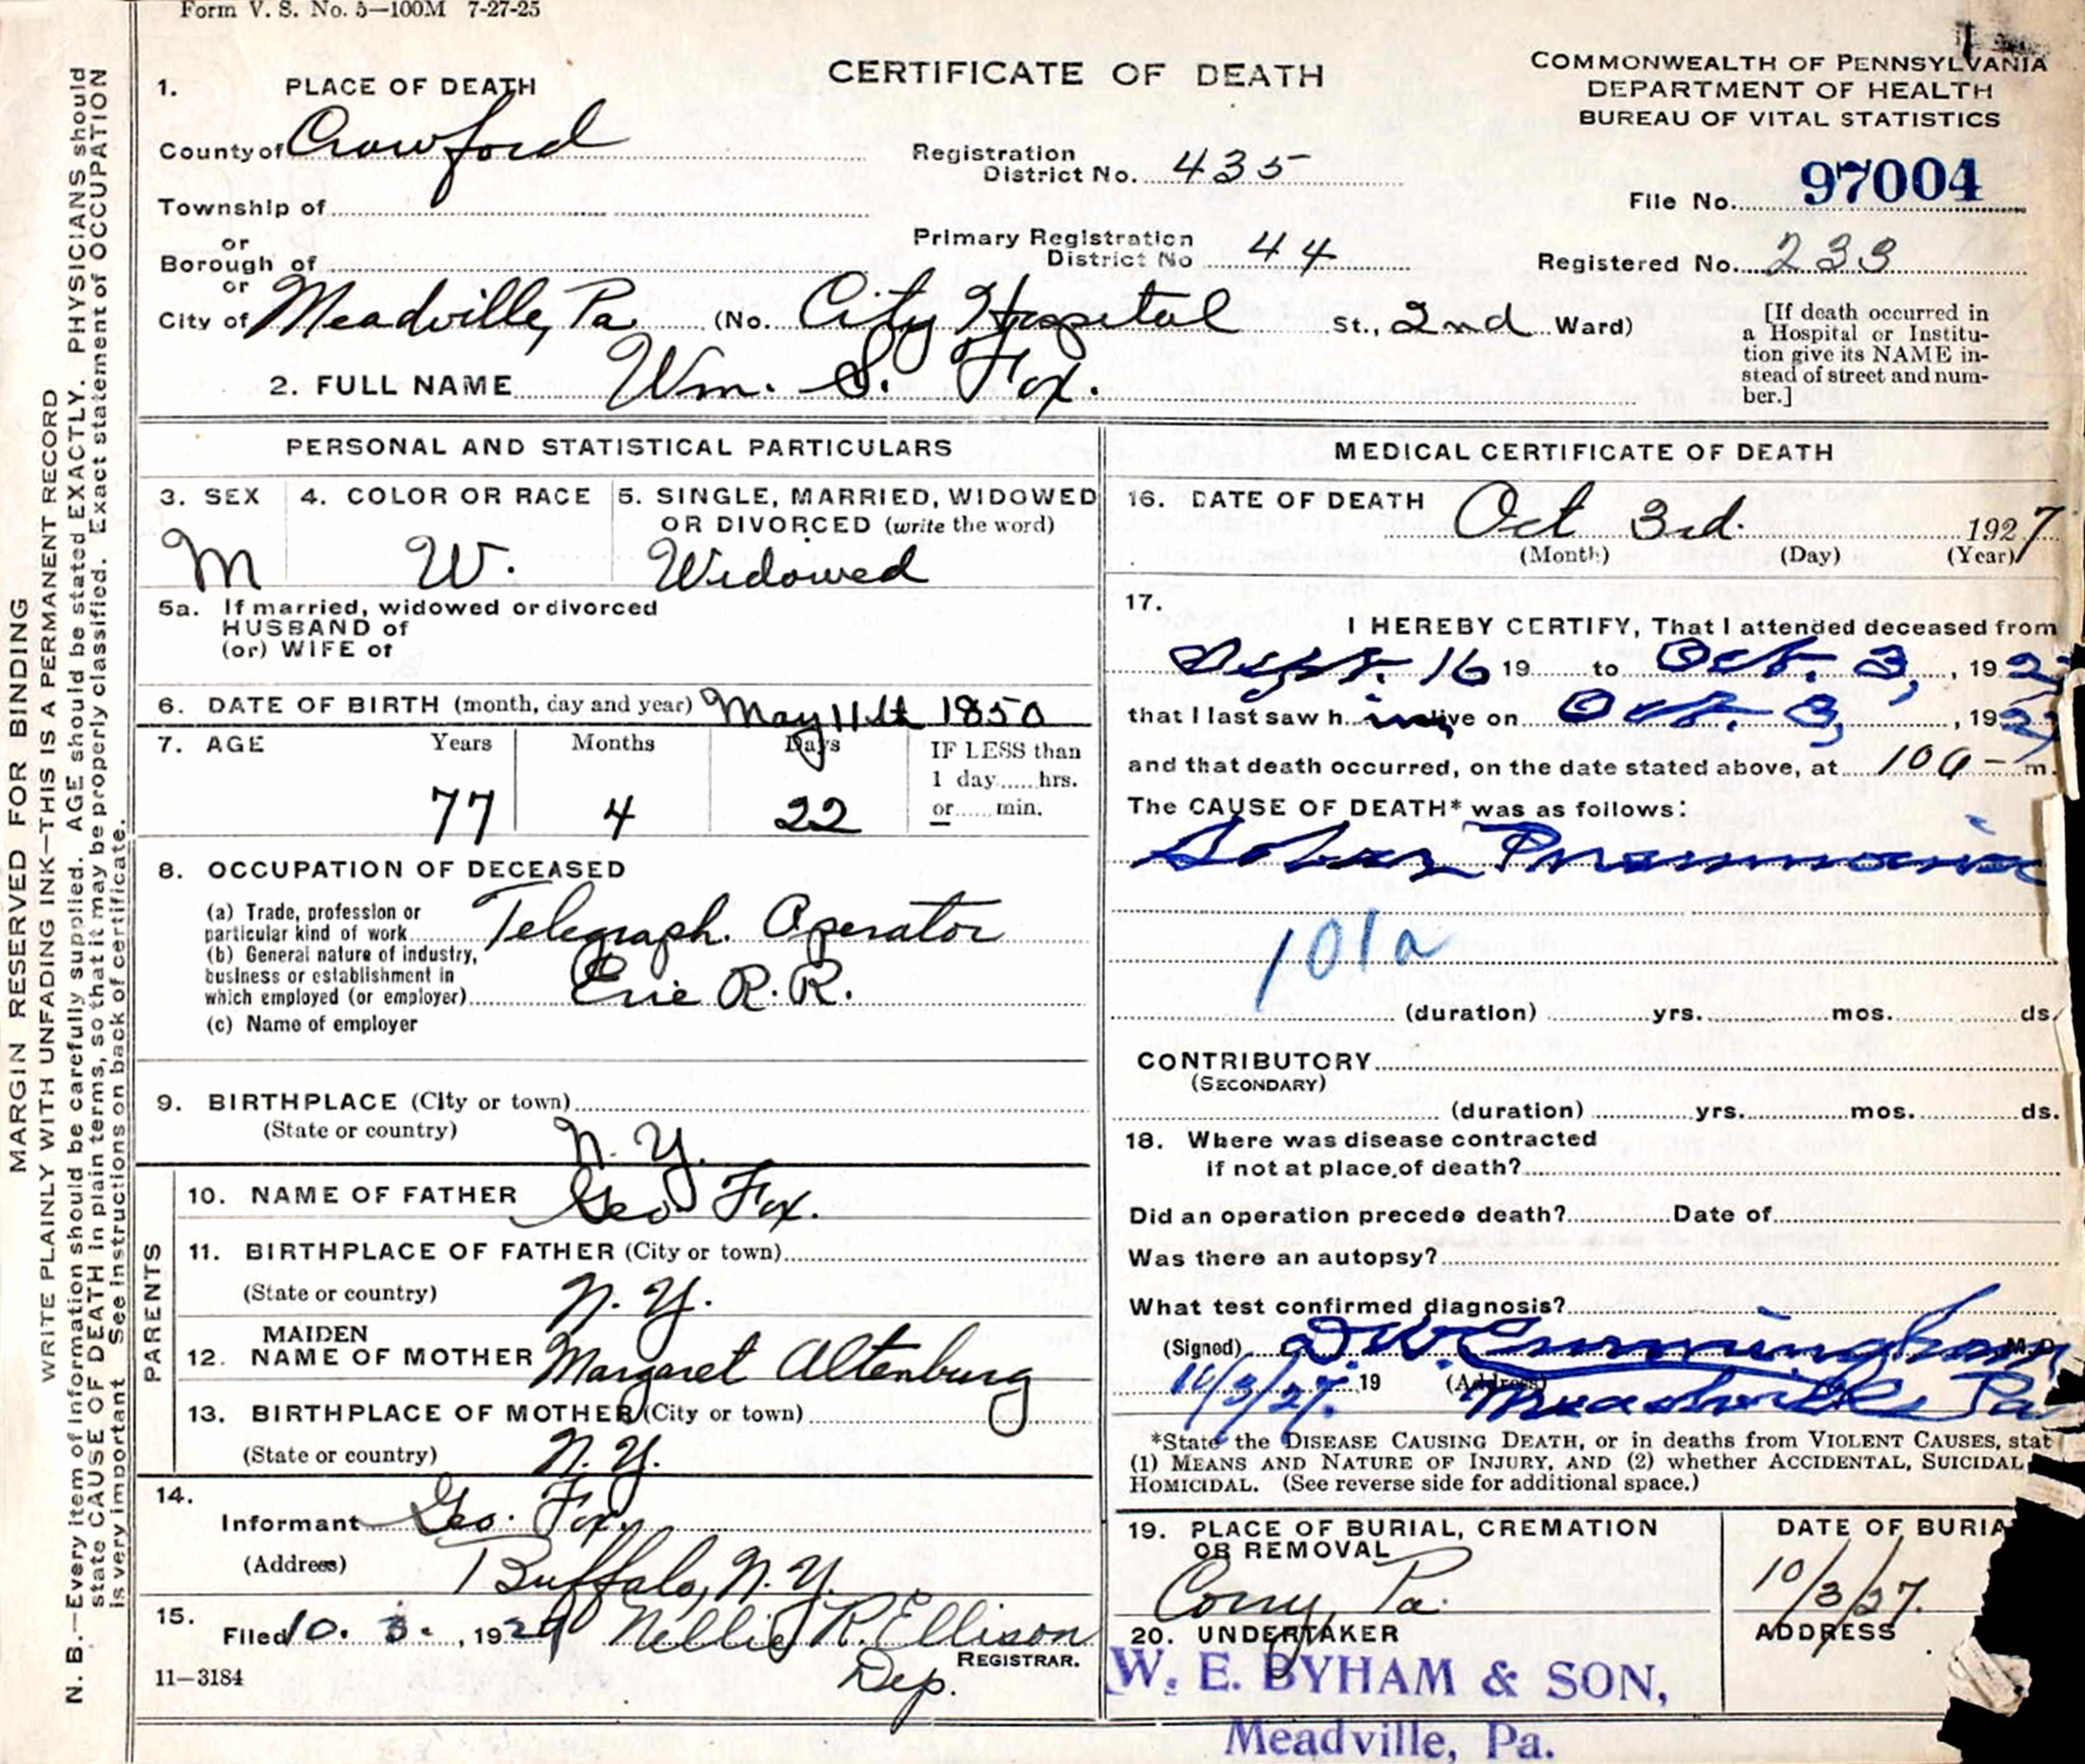 Form V. S. No. 5—100M 7-27-25
CERTIFICATE OF DEATH
COMMONWEALTH OF PENNSYLVANIA
DEPARTMENT OF HEALTH
BUREAU OF VITAL STATISTICS
1. PLACE OF DEATH
County of Crawford
Registration
District No. 435
File No. 97004
Township of
or
Borough of
Primary Registration
District No 44
Registered No. 233
or
City of Meadville, Pa. (No. City Hospital St., 2nd Ward)
[If death occurred in
a Hospital or Institu-
tion give its NAME in-
stead of street and num-
ber.]
2. FULL NAME Wm. S. Fox.
PERSONAL AND STATISTICAL PARTICULARS
3. SEX
M
4. COLOR OR RACE
W.
5. SINGLE, MARRIED, WIDOWED
OR DIVORCED (write the word)
Widowed
5a. If married, widowed or divorced
HUSBAND of
(or) WIFE of
6. DATE OF BIRTH (month, day and year) May 11th 1850
7. AGE Years Months Days IF LESS than
1 day......hrs.
or......min.
77 4 22
8. OCCUPATION OF DECEASED
(a) Trade, profession or
particular kind of work Telegraph. Operator
(b) General nature of industry,
business or establishment in
which employed (or employer) Erie R.R.
(c) Name of employer
9. BIRTHPLACE (City or town)
(State or country) N. Y.
PARENTS
10. NAME OF FATHER Geo Fox.
11. BIRTHPLACE OF FATHER (City or town)
(State or country) N. Y.
12. MAIDEN NAME OF MOTHER Margaret Altenburg
13. BIRTHPLACE OF MOTHER (City or town)
(State or country) N. Y.
14.
Informant Geo. Fox.
(Address) Buffalo, N. Y.
15.
Filed 10. 3. , 1927 Nellie R. Ellison
REGISTRAR.
Dep.
11—3184
MEDICAL CERTIFICATE OF DEATH
16. DATE OF DEATH Oct 3rd. 1927
(Month) (Day) (Year)
17.
I HEREBY CERTIFY, That I attended deceased from
Sept. 16 19 to Oct. 3, , 192
that I last saw h im alive on Oct. 3, , 1927
and that death occurred, on the date stated above, at 10a — m.
The CAUSE OF DEATH* was as follows:
Lobar Pneumonia
101a
(duration) yrs. mos. ds.
CONTRIBUTORY
(SECONDARY)
(duration) yrs. mos. ds.
18. Where was disease contracted
if not at place of death?
Did an operation precede death? Date of
Was there an autopsy?
What test confirmed diagnosis?
(Signed) D. W. Cunningham M. D.
10/3/27. 19 (Address) Meadville Pa
*State the DISEASE CAUSING DEATH, or in deaths from VIOLENT CAUSES, stat
(1) MEANS AND NATURE OF INJURY, AND (2) whether ACCIDENTAL, SUICIDAL,
HOMICIDAL. (See reverse side for additional space.)
19. PLACE OF BURIAL, CREMATION
OR REMOVAL
Corry, Pa.
DATE OF BURIA
10/3/27.
20. UNDERTAKER
ADDRESS
W. E. BYHAM & SON,
Meadville, Pa.
MARGIN RESERVED FOR BINDING
WRITE PLAINLY WITH UNFADING INK—THIS IS A PERMANENT RECORD
N. B.—Every item of information should be carefully supplied. AGE should be stated EXACTLY. PHYSICIANS should
state CAUSE OF DEATH in plain terms, so that it may be properly classified. Exact statement of OCCUPATION
is very important. See instructions on back of certificate.